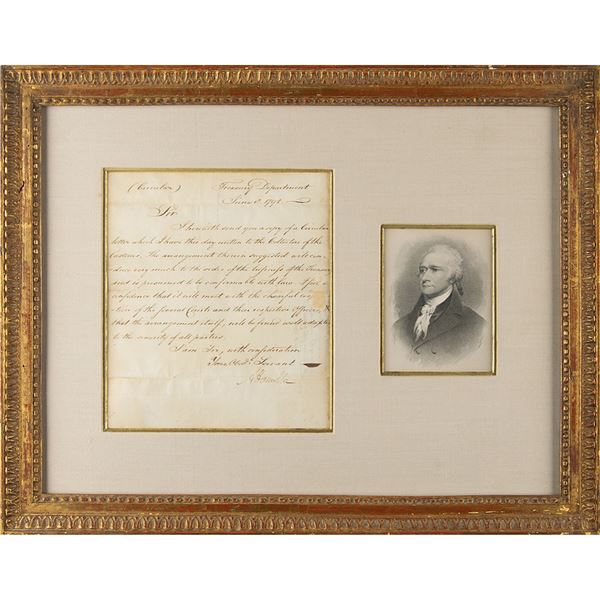 (Circular) Treasury Department
June 1792
Sir
I herewith send you a copy of a Circular
letter which I have this day written to the Collectors of the
Customs. The arrangement therein suggested will con-
duce very much to the order of the business of the Treasury
and is presumed to be conformable with law. I feel a
confidence that it will meet with the chearful
of the several Courts and their respective Officers, &
that the arrangement itself, will be found well adapted
to the of all parties.
I am Sir, with consideration
Your Obedt Servant
A Hamilton